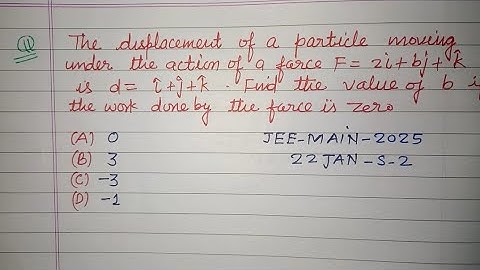 Q The displacement of a particle moving
under the action of a farce F = 2i + bj + k̂
is d = î + ĵ + k̂ . Find the value of b i
the work done by the farce is zero
(A) 0 JEE-MAIN-2025
(B) 3 22 JAN-S-2
(C) -3
(D) -1